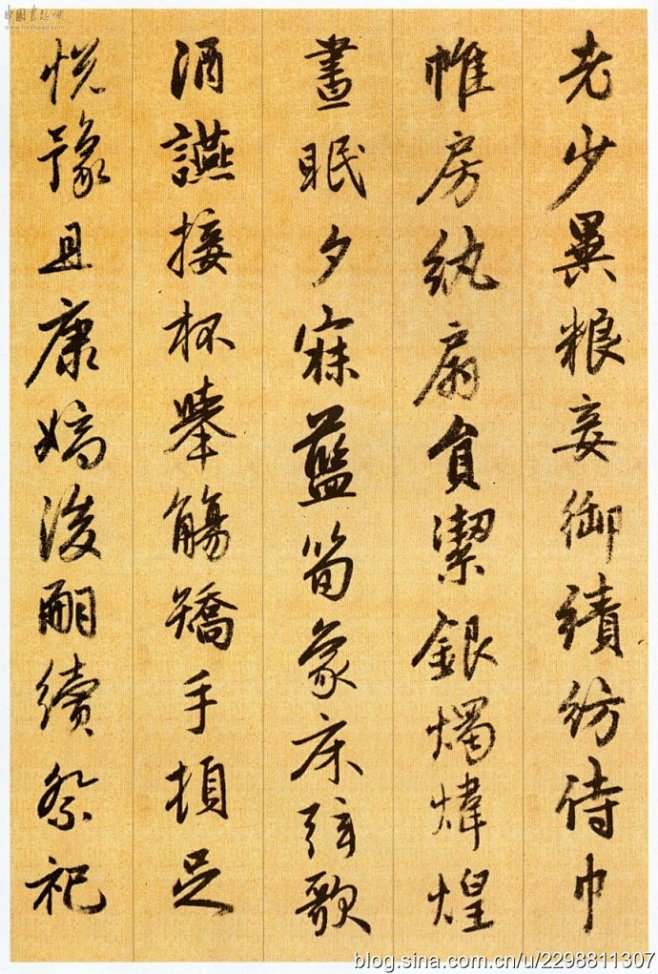 老少異粮妾御績紡侍巾
帷房紈扇員潔銀燭煒煌
晝眠夕寐藍筍象床弦歌
酒讌接杯舉觴矯手頓足
悅豫且康嫡後嗣續祭祀
blog.sina.com.cn/u/2298811307